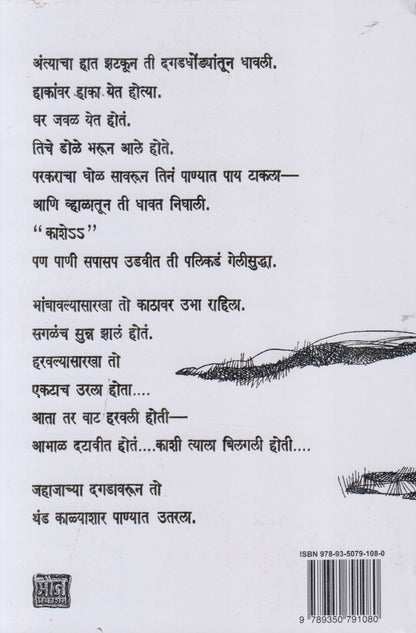 अंत्याचा हात झटकून ती दगडधोंड्यांतून धावली.
हाकांवर हाका येत होत्या.
घर जवळ येत होतं.
तिचे डोळे भरून आले होते.
परकराचा घोळ सावरून तिनं पाण्यात पाय टाकला—
आणि व्हाळातून ती धावत निघाली.
“काशेऽऽ”
पण पाणी सपासप उडवीत ती पलिकडं गेलीसुद्धा.
भांबावल्यासारखा तो काठावर उभा राहिला.
सगळंच सुन्न झालं होतं.
हरवल्यासारखा तो
एकटाच उरला होता....
आता तर वाट हरवली होती—
आभाळ दटावीत होतं....काशी त्याला चिलगली होती....
जहाजाच्या दगडावरून तो
थंड काळ्याशार पाण्यात उतरला.
ISBN 978-93-5079-108-0
9 789350 791080
मौज
प्रकाशन